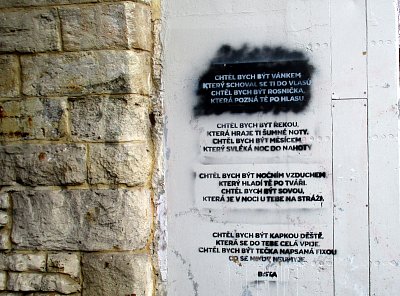 CHTĚL BYCH BÝT VÁNKEM,
KTERÝ SCHOVAL SE TI DO VLASŮ
CHTĚL BYCH BÝT ROSNIČKA,
KTERÁ POZNÁ TĚ PO HLASU
CHTĚL BYCH BÝT ŘEKOU,
KTERÁ HRAJE TI ŠUMNÉ NOTY,
CHTĚL BYCH BÝT MĚSÍCEM,
KTERÝ SVLÉKÁ NOC DO NAHOTY
CHTĚL BYCH BÝT NOČNÍM VZDUCHEM,
KTERÝ HLADÍ TĚ PO TVÁŘI.
CHTĚL BYCH BÝT SOVOU,
KTERÁ JE V NOCI U TEBE NA STRÁŽI.
CHTĚL BYCH BÝT KAPKOU DEŠTĚ,
KTERÁ SE DO TEBE CELÁ VPIJE.
CHTĚL BYCH BÝT TEČKA NAPSANÁ FIXOU
CO SE NIKDY NESMYJE.